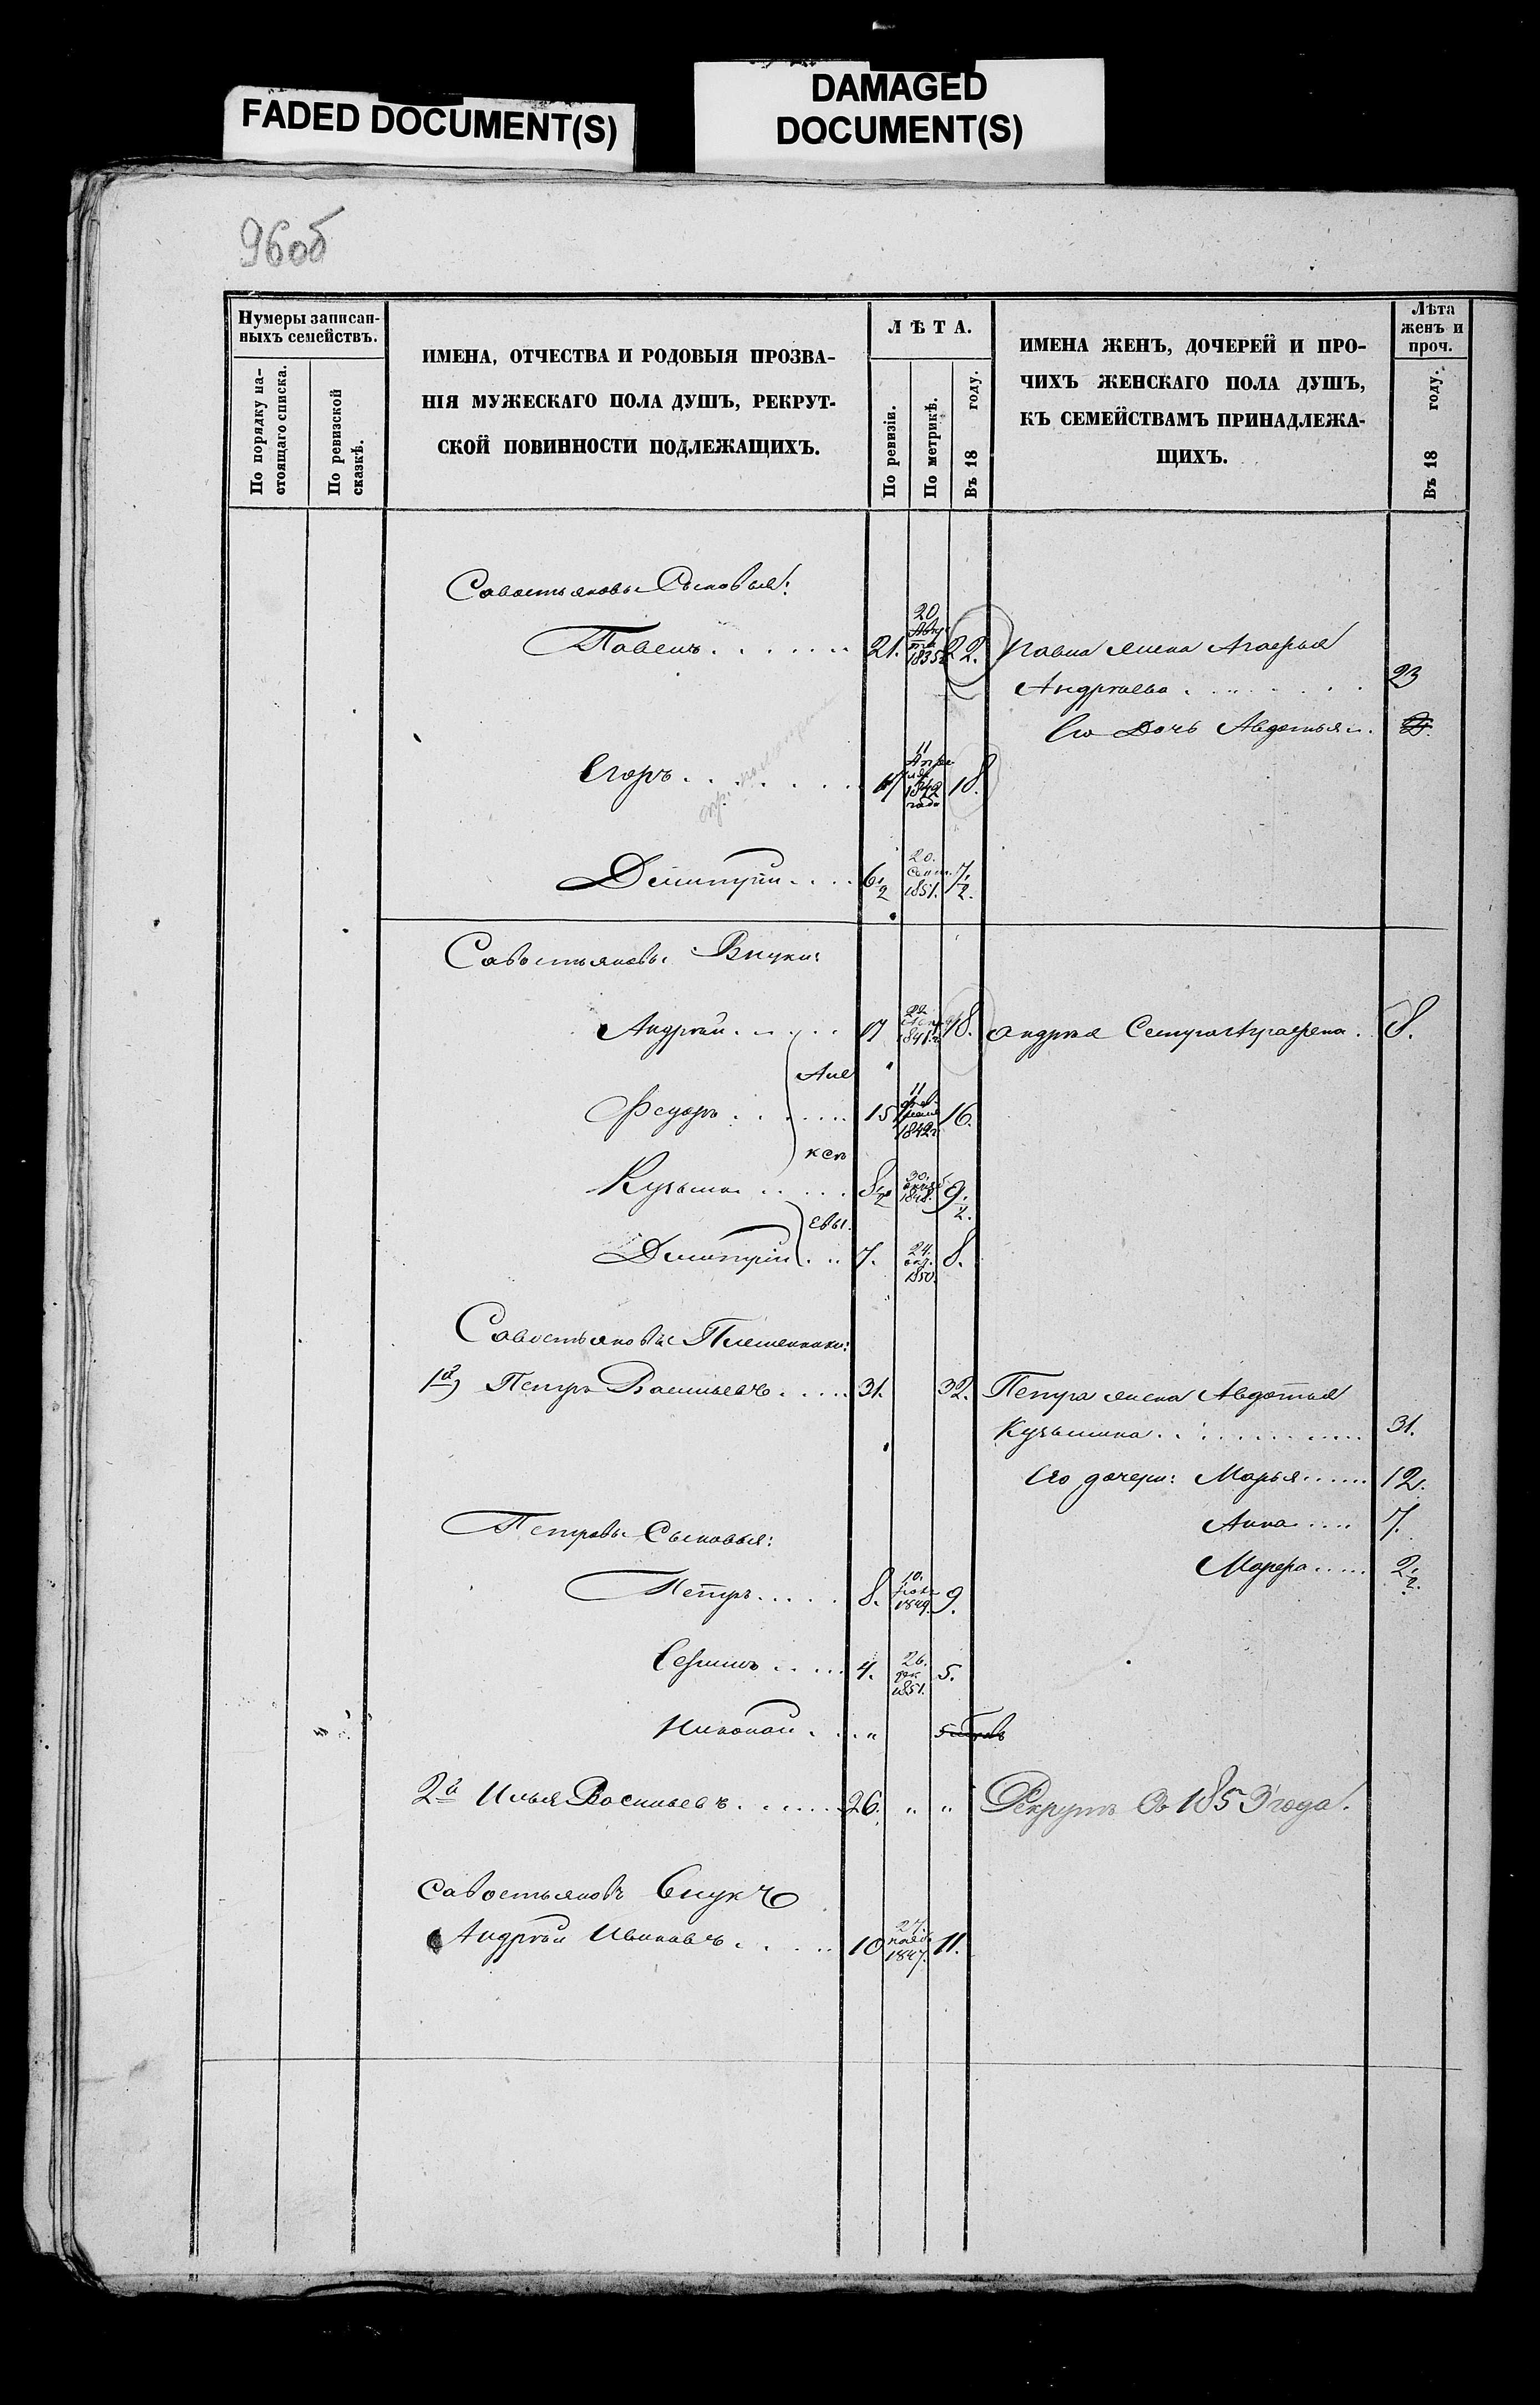 FADED DOCUMENT(S)
DAMAGED
DOCUMENT(S)
96об
Нумеры записан-
ныхъ семействъ.
По порядку на-
стоящаго списка.
По ревизской
сказкѣ.
ИМЕНА, ОТЧЕСТВА И РОДОВЫЯ ПРОЗВА-
НІЯ МУЖЕСКАГО ПОЛА ДУШЪ, РЕКРУТ-
СКОЙ ПОВИННОСТИ ПОДЛЕЖАЩИХЪ.
ЛѢТА.
По ревизіи.
По метрикѣ.
Въ 18 году.
ИМЕНА ЖЕНЪ, ДОЧЕРЕЙ И ПРО-
ЧИХЪ ЖЕНСКАГО ПОЛА ДУШЪ,
КЪ СЕМЕЙСТВАМЪ ПРИНАДЛЕЖА-
ЩИХЪ.
Лѣта
женъ и
проч.
Въ 18 году.
Савостьяновы Сыновья:
Павелъ . . . . . . . 21. 20 Авгу 1835 22. Павла жена Агафья
Андреева . . . . . . . 23
Его Дочь Авдотья . .
Егоръ . . . . . . . 17 11 Апреля 1842 года 18.
Дмитрій . . . . 6 1/2 20. Сент. 1851. 7 1/2.
Савостьяновы Внуки:
Андрей . . . . . 17 22 1841 18. Андрея Сестра Аграфена . 8.
Але
Федоръ . . . . . . 15 11 февраля 1842 16.
ксѣ
Кузьма . . . . . 8 1/2 30. 1848. 9. 1/2.
евы.
Дмитрій . . . 7. 24. окт. 1850. 8.
Савостьяновы Племенники:
1й) Петръ Васильевъ . . . . . 31. 32. Петра жена Авдотья
Кузьмина . . . . . . . . . . 31.
Его дочери: Марья . . . . . . 12.
Анна . . . . 7.
Петровы Сыновья:
. . . . . 2. 1/2.
Петръ . . . . . 8. 10. 1849. 9.
. . . . . 4. 26. 1851. 5.
Николай . . . . "
2й Илья Васильевъ . . . . . . . 26. " " Рекрутъ Съ 1853 года.
Савостьяновъ Внукъ
Андрей Ивановъ . . . . . 10 27. нояб. 1847. 11.